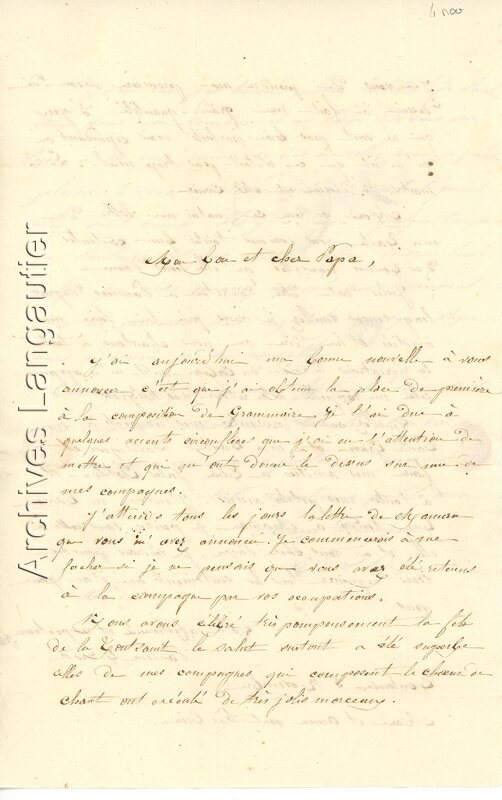 4 nov
Mon bon et cher Papa,
J'ai aujourd'hui une bonne nouvelle à vous
annoncer c'est que j'ai obtenu la place de première
à la composition de Grammaire Je l'ai due à
quelques accents circonflexes que j'ai eu l'attention de
mettre et qui m'ont donné le dessus sur une de
mes compagnes.
J'attends tous les jours la lettre de Maman
que vous m'avez annoncée. Je commencerois à me
facher si je ne pensais que vous avez été retenus
à la campagne par vos occupations.
Nous avons célébré très pompeusement la fête
de la Toussaint le salut surtout a été superbe
celles de mes compagnes qui composent le chœur de
chant ont exécuté de très jolis morceaux.
Archives Langautier